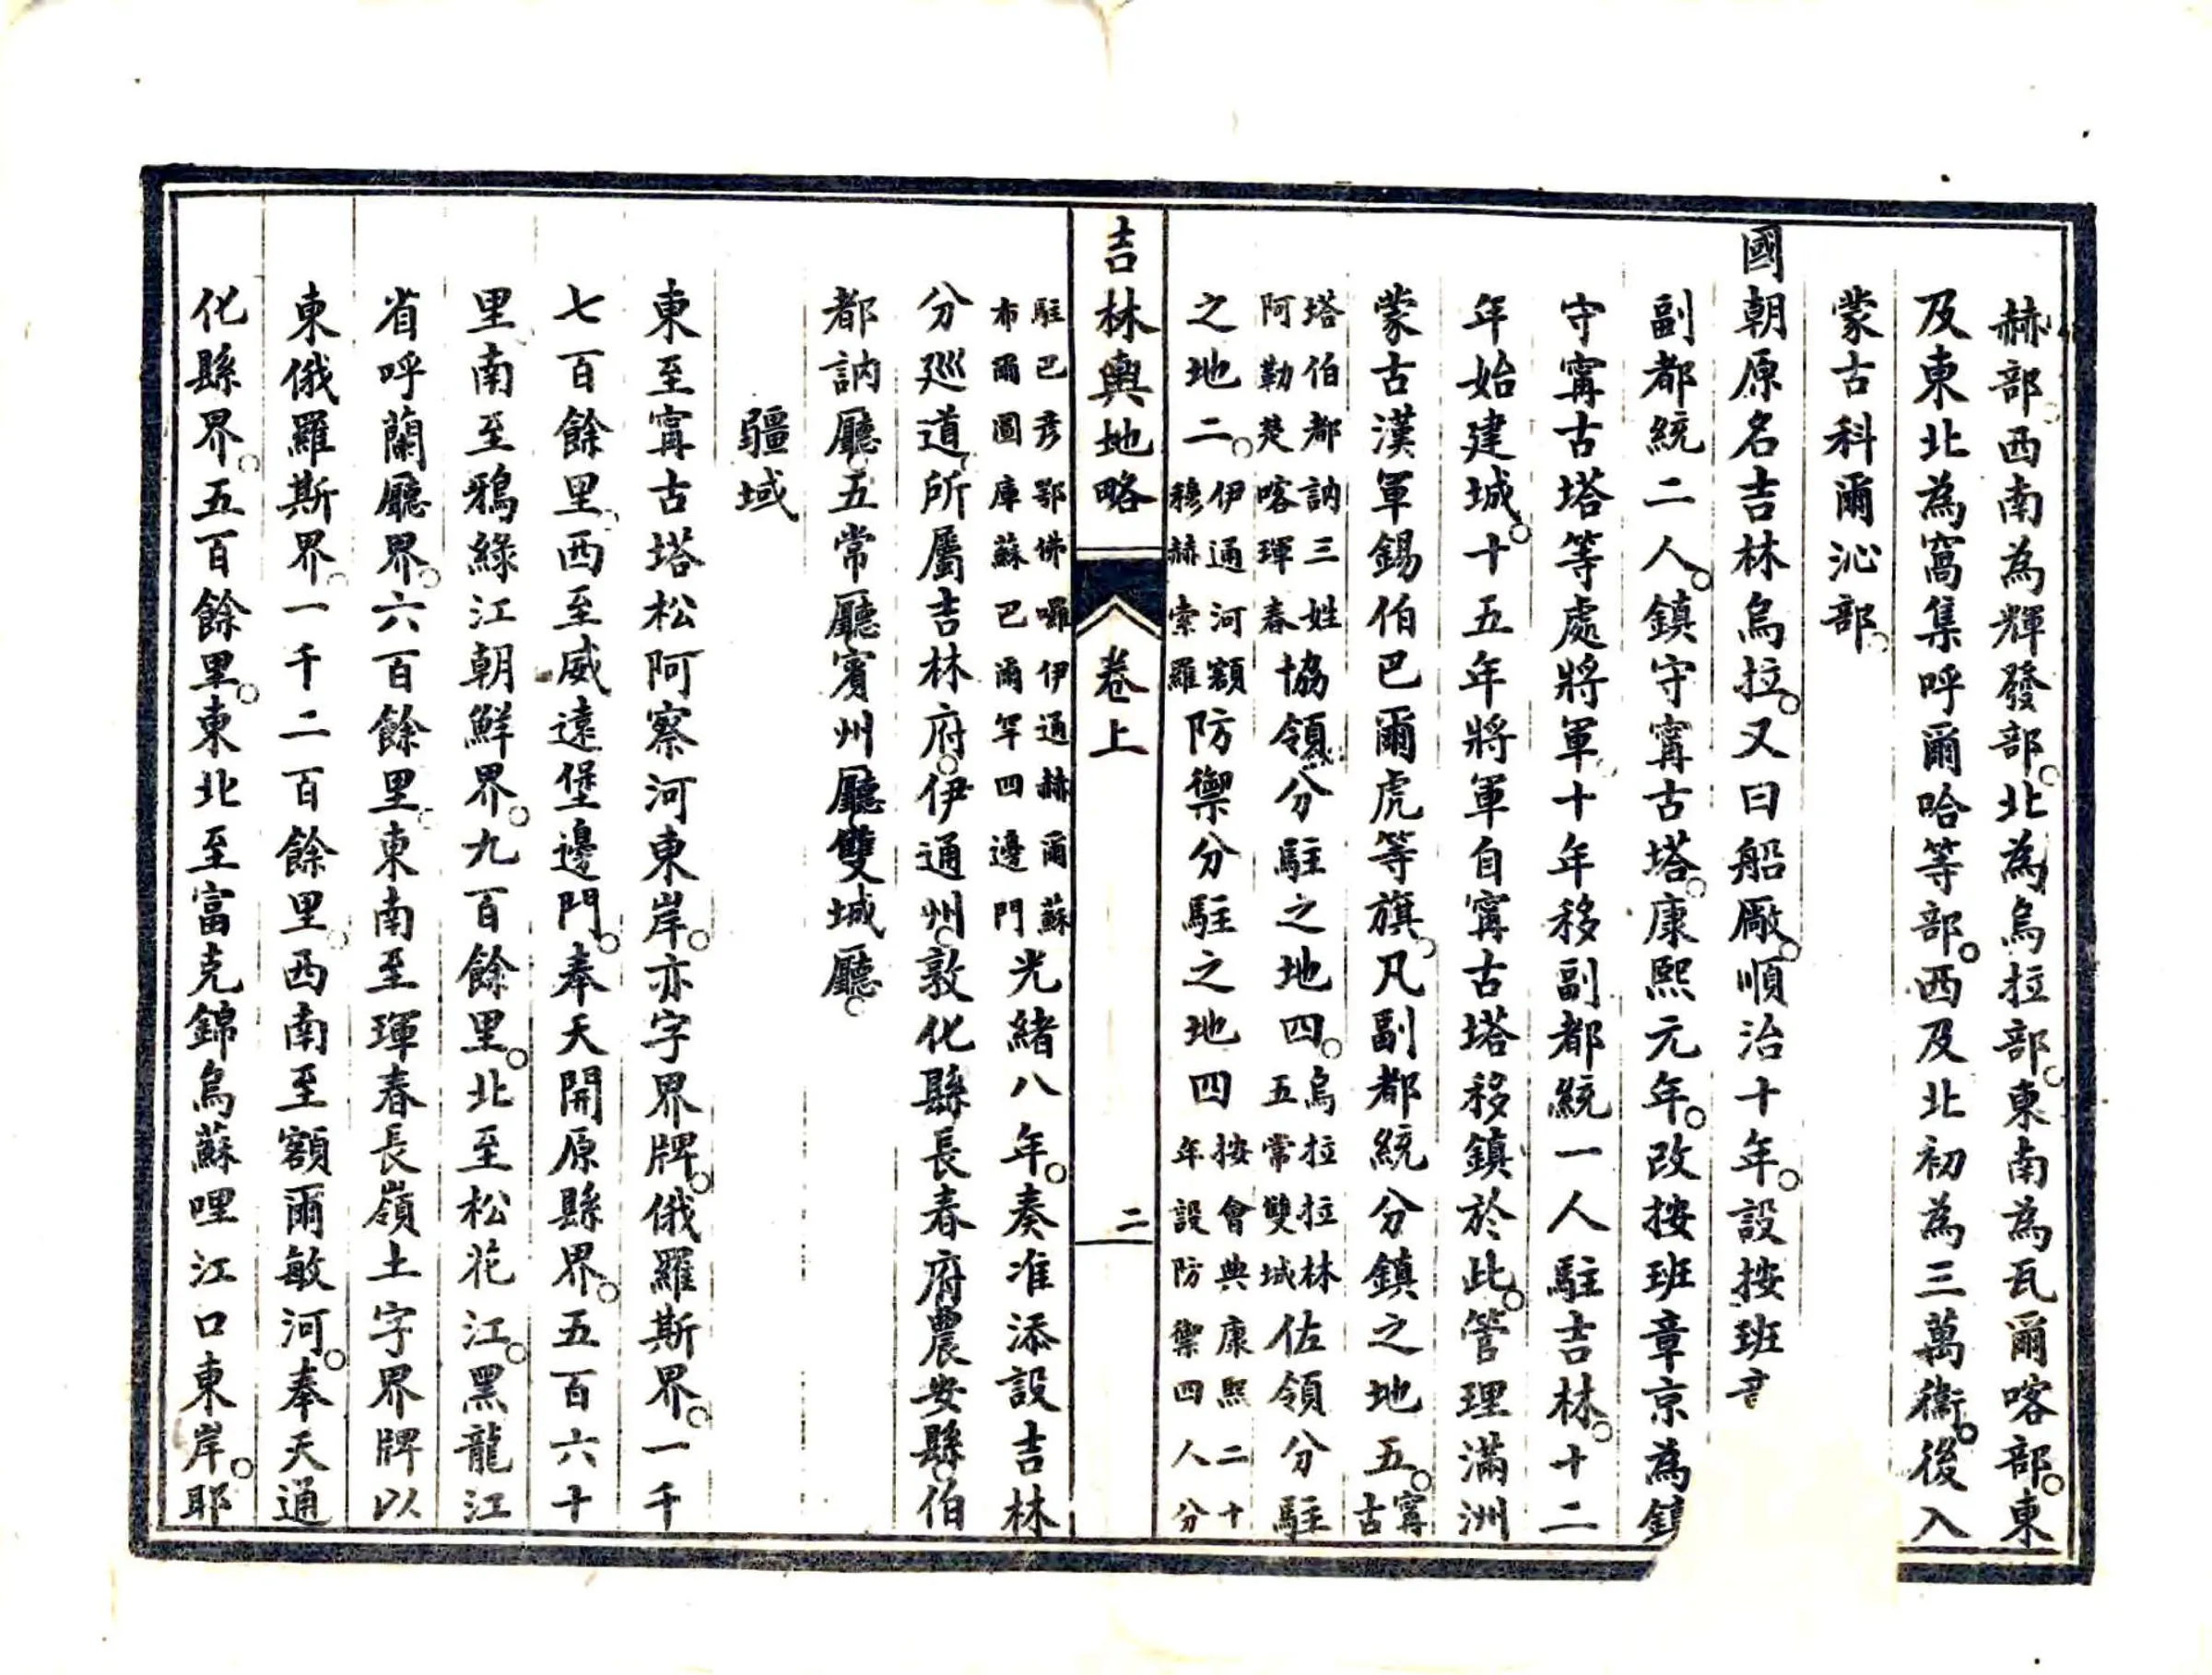 赫部西南為輝發部。北為烏拉部。東南為瓦爾喀部。東
及東北為窩集呼爾哈等部。西及北初為三萬衞。後入
蒙古科爾沁部。
國朝原名吉林烏拉。又曰船廠。順治十年。設按班
副都統二人。鎮守寗古塔。康熙元年。改按班章京為鎮
守寗古塔等處將軍。十年移副都統一人駐吉林。十二
年始建城。十五年將軍自寗古塔移鎮於此。管理滿洲
蒙古漢軍錫伯巴爾虎等旗。凡副都統分鎮之地五。寗古
塔伯都訥三姓阿勒楚喀琿春協領分駐之地四。烏拉拉林五常雙城佐領分駐
之地二。伊通河額穆赫索羅防禦分駐之地四按會典康熙二十年設防禦四人分
吉林輿地略 卷上 二
駐巴彥鄂佛囉伊通赫爾蘇布爾圖庫蘇巴爾罕四邊門光緒八年。奏准添設吉林
分巡道。所屬吉林府。伊通州。敦化縣長春府農安縣。伯
都訥廳。五常廳。賓州廳。雙城廳。
疆域
東至寗古塔松阿察河東岸。亦字界牌。俄羅斯界。一千
七百餘里。西至威遠堡邊門。奉天開原縣界。五百六十
里。南至鴉綠江朝鮮界。九百餘里。北至松花江。黑龍江
省呼蘭廳界。六百餘里。東南至琿春長嶺土字界牌以
東俄羅斯界。一千二百餘里。西南至額爾敏河。奉天通
化縣界。五百餘里。東北至富克錦烏蘇哩江口東岸。耶